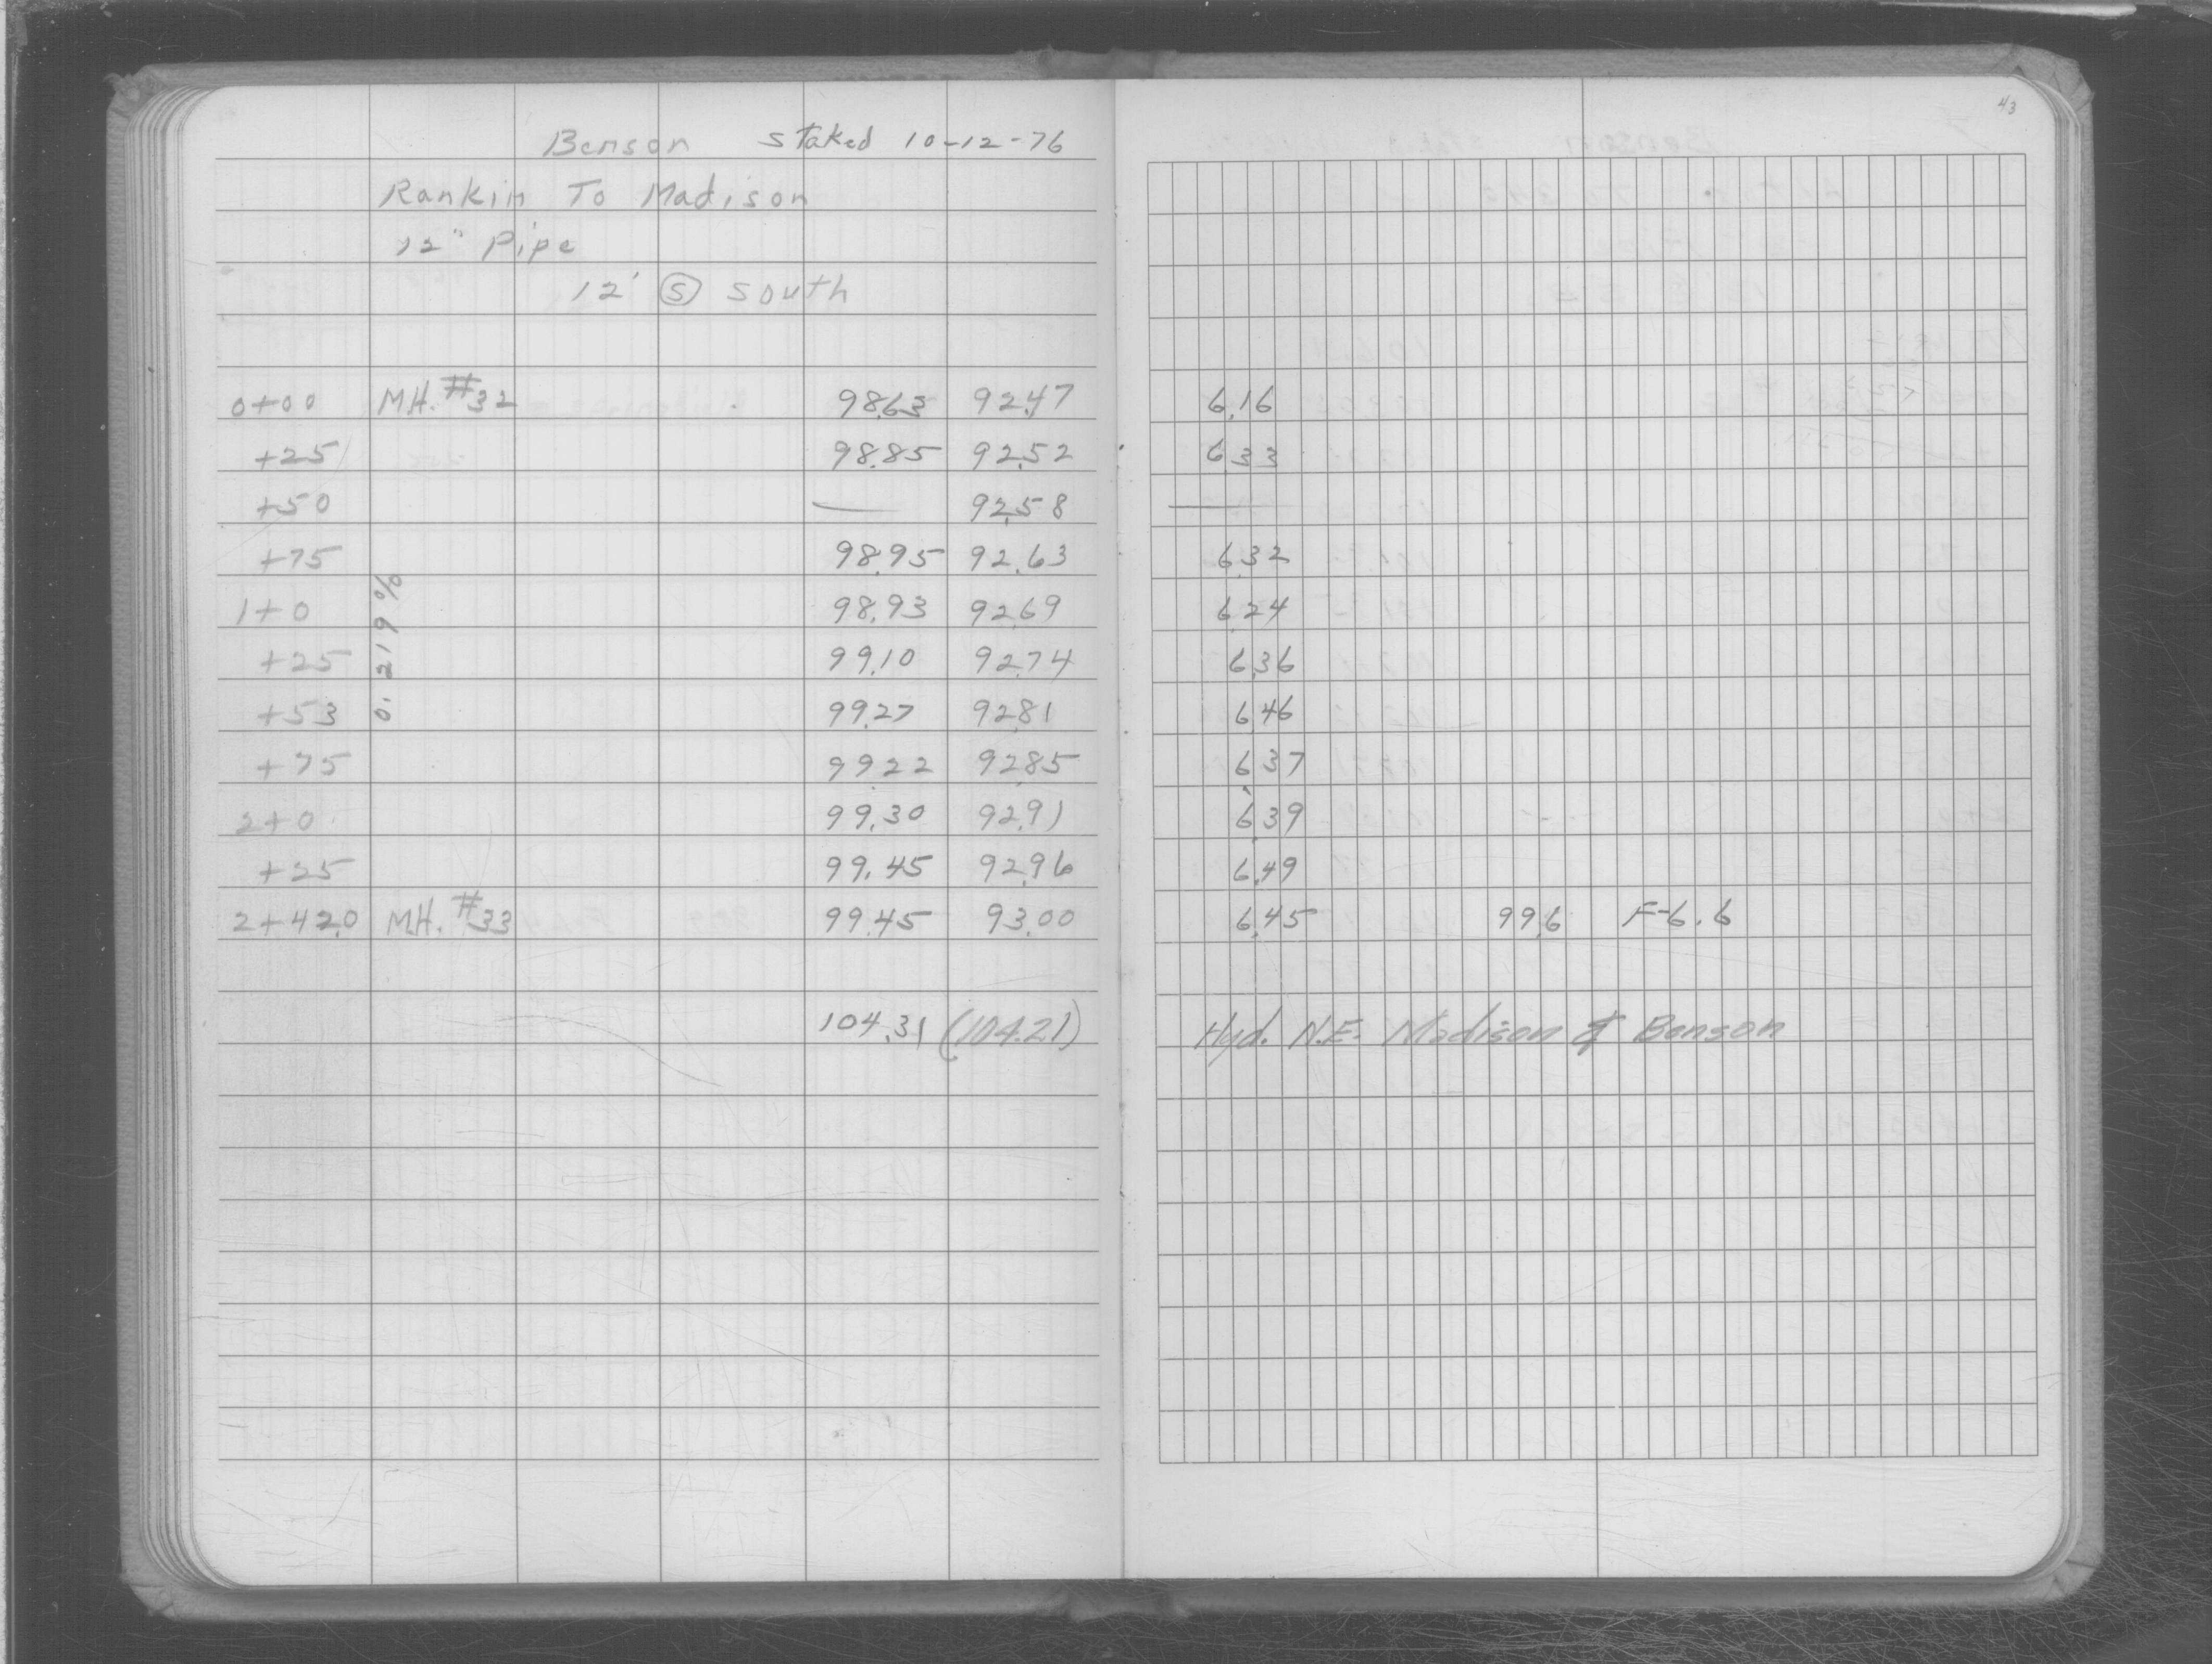 43
Benson staked 10-12-76
Rankin To Madison
12" Pipe
12' Ⓢ South
0+00 MH. #32 98.63 92.47 6.16
+25 98.85 92.52 6.33
+50 — 92.58 —
+75 98.95 92.63 6.32
1+0 98.93 92.69 6.24
+25 99.10 92.74 6.36
+53 99.27 92.81 6.46
+75 99.22 92.85 6.37
2+0 99.30 92.91 6.39
+25 99.45 92.96 6.49
2+42.0 MH. #33 99.45 93.00 6.45 99.6 F-6.6
0.219%
104.31 (104.21) Hyd. N.E. Madison & Benson